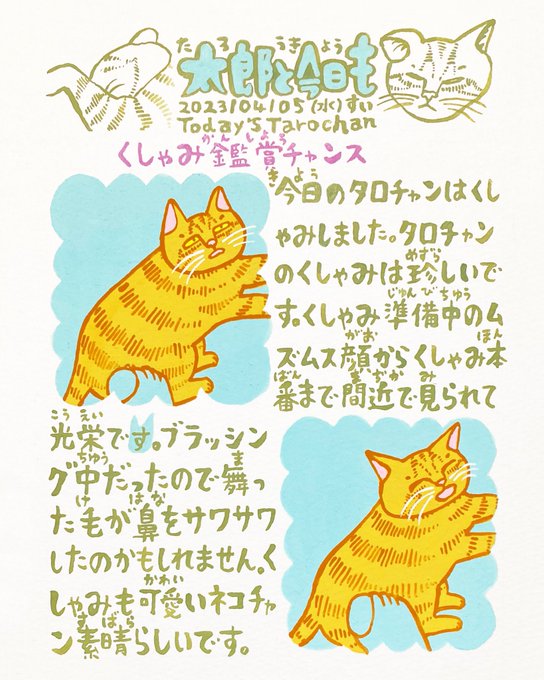 太郎と今日も
2023/04/05(水)すい
Today's Tarochan
くしゃみ鑑賞チャンス
今日のタロチャンはくし
ゃみしました。タロチャン
のくしゃみは珍しいで
す。くしゃみ準備中のム
ズムス顔からくしゃみ本
番まで間近で見られて
光栄です。ブラッシン
グ中だったので舞っ
た毛が鼻をサワサワ
したのかもしれません。く
しゃみも可愛いネコチャ
ン素晴らしいです。